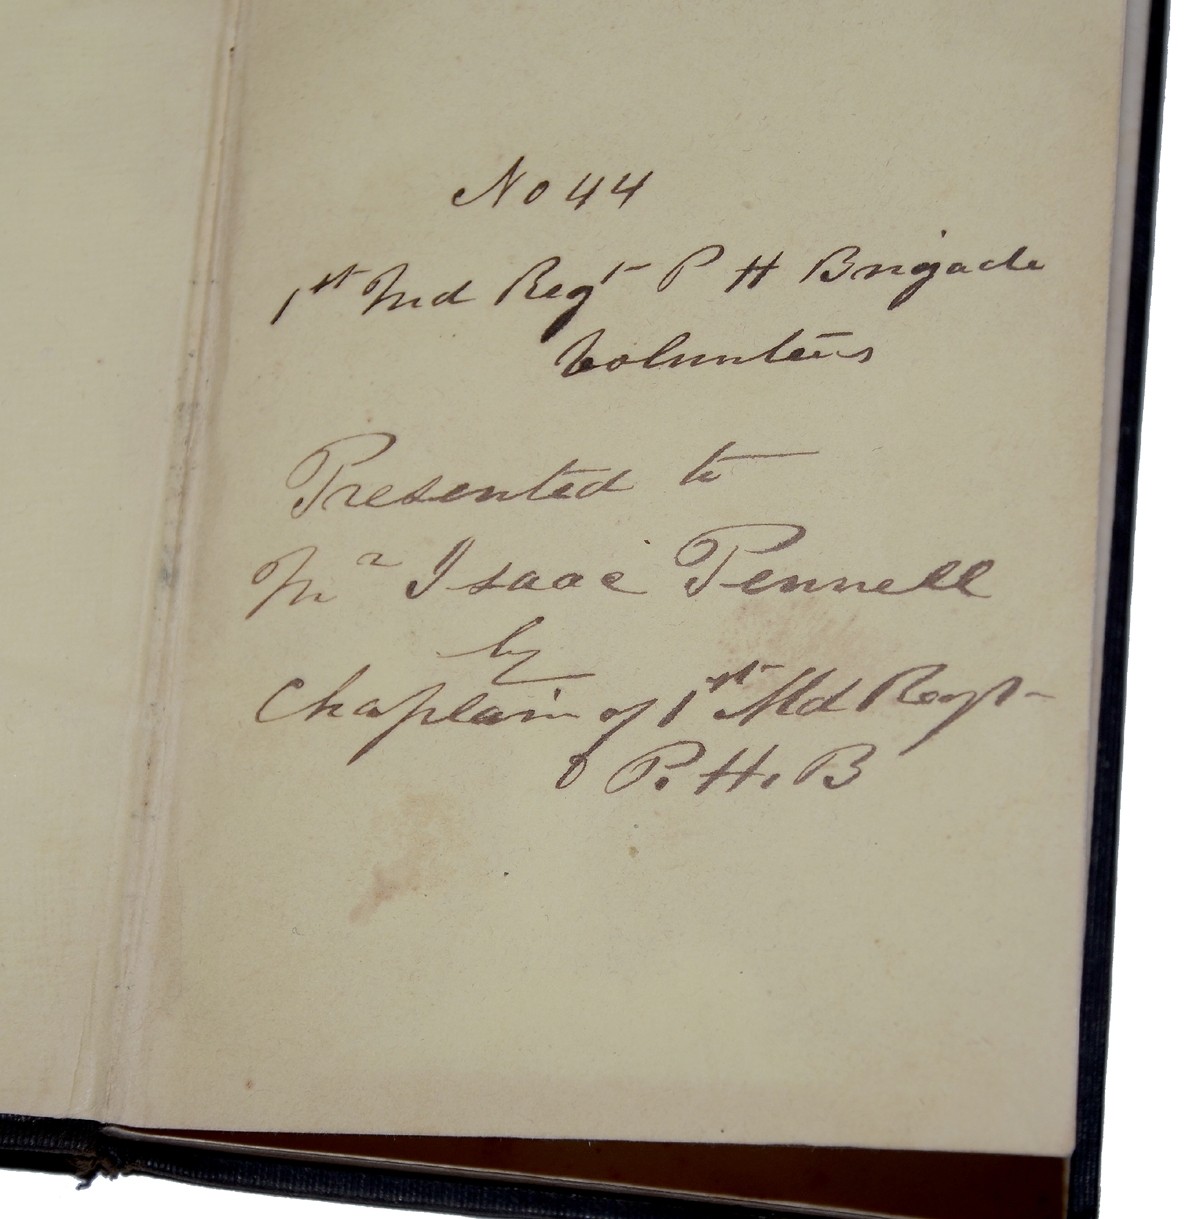 No 44
1st Md Regt P H Brigade
Volunteers
Presented to
Mr Isaac Pennell
by
Chaplain of 1st Md Regt
P. H. B